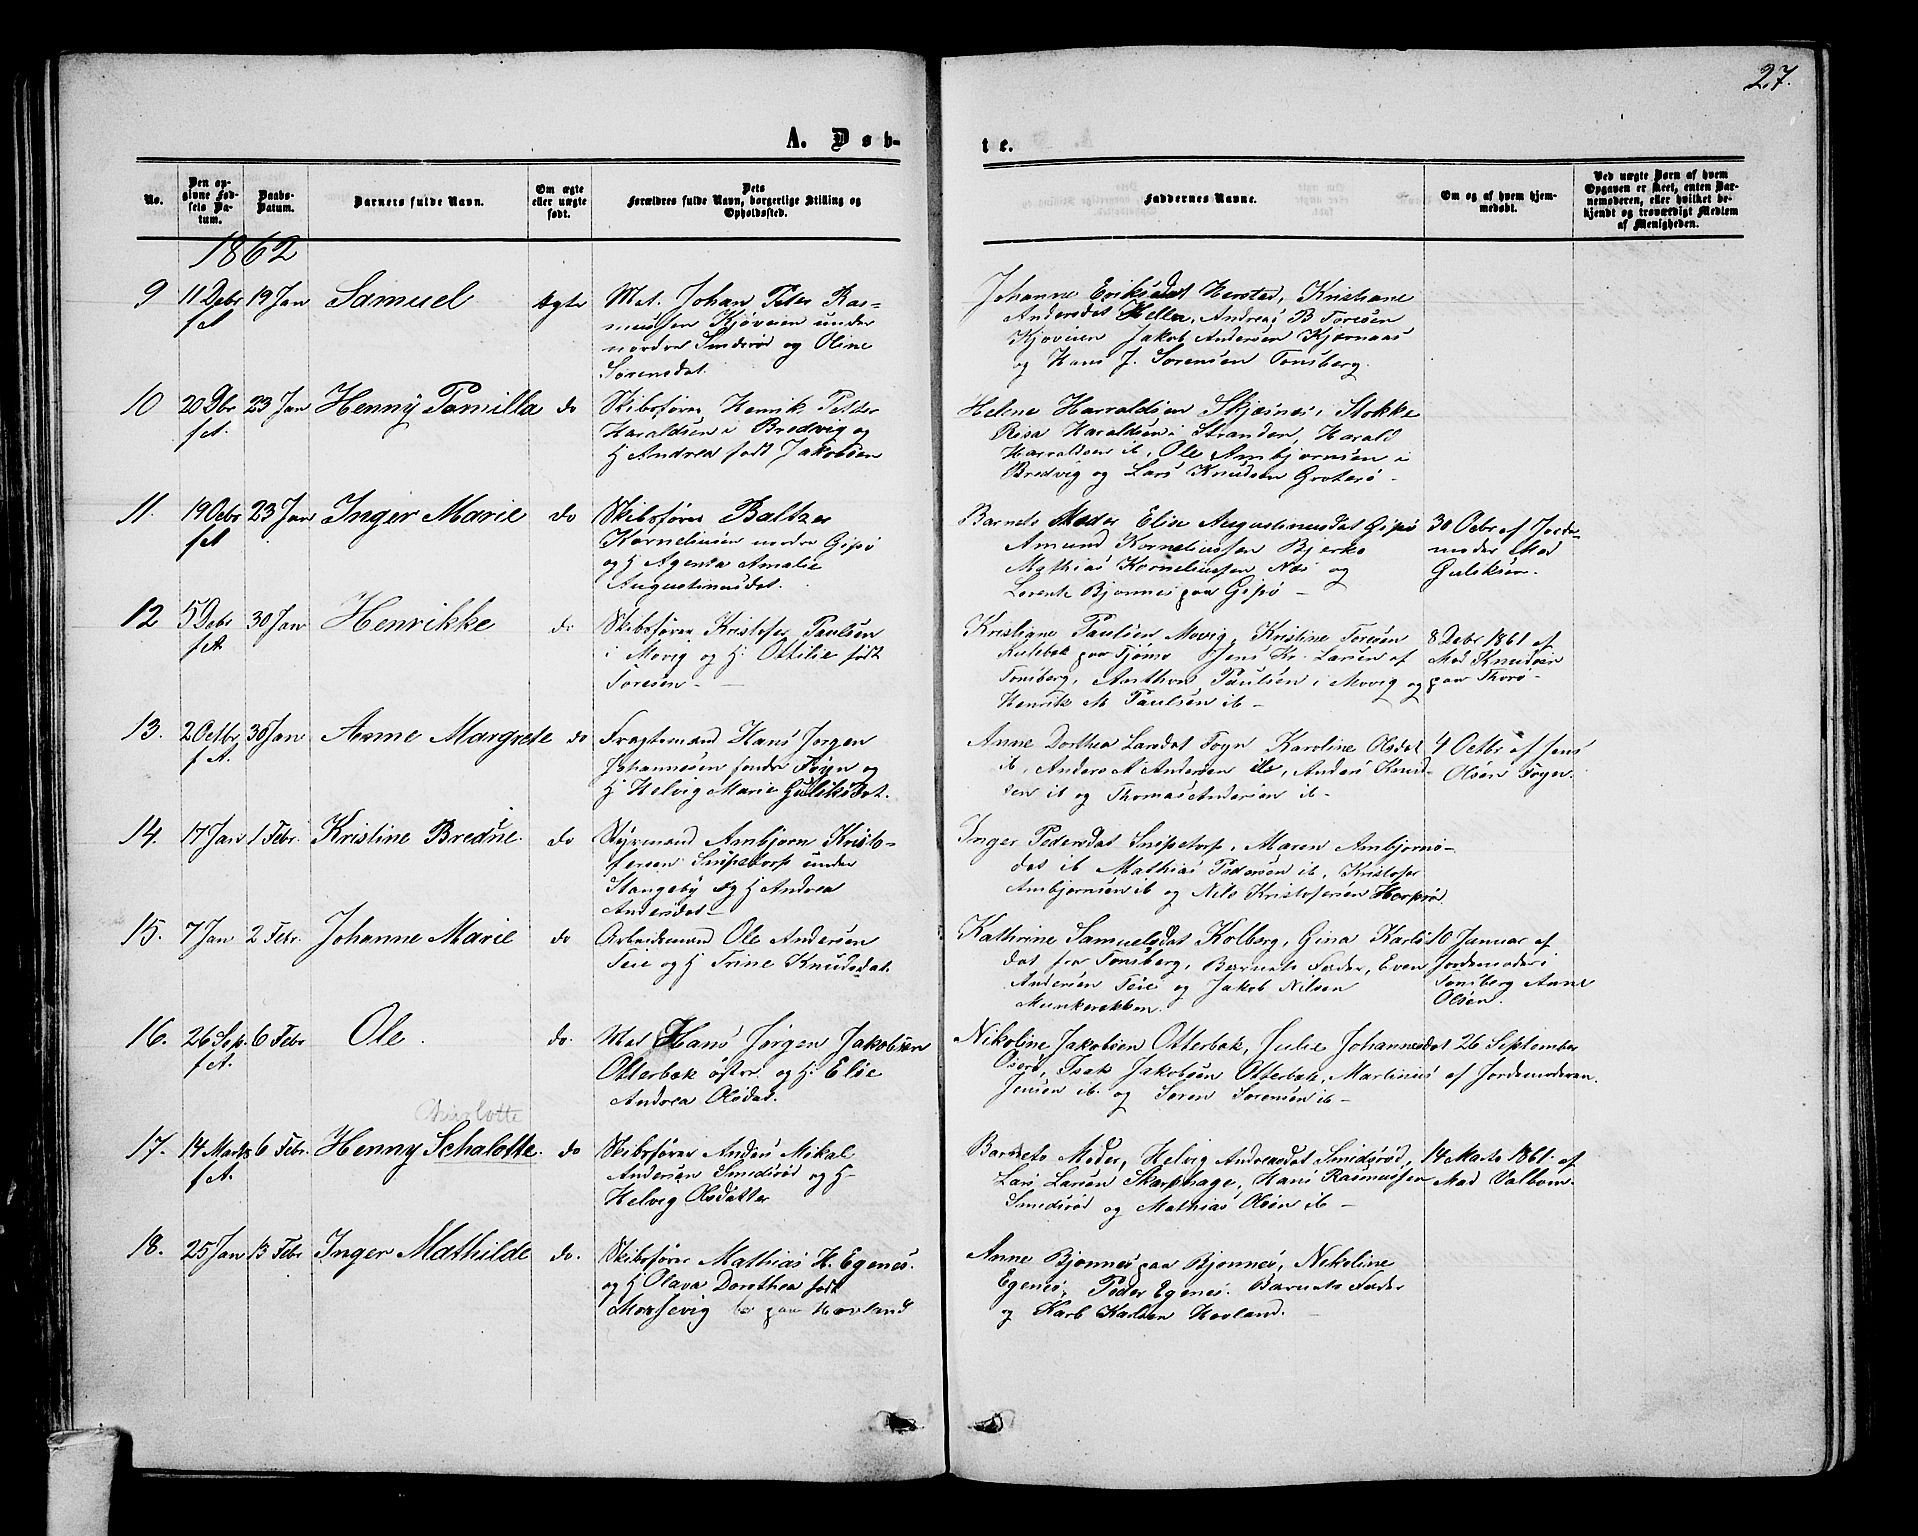 27.
A. Døb-
te.
No.
Den opgivne Fødsels Datum.
Daabs-Datum.
Barnets fulde Navn.
Om ægte eller uægte født.
Dets Forældres fulde Navn, borgerlige Stilling og Opholdssted.
Faddernes Navne.
Om og af hvem hjemmedøbt.
Ved uægte Børn af hvem Opgaven er skeet, enten Barnemoderen, eller hvilket bekjendt og troværdigt Medlem af Menigheden.
1862
9 11 Debr f A 19 Jan Samuel ægte Mat. Johan Peter Ras-
mussen Kjøveien under
nordre Smidsrød og Oline
Sørensdat.
Johanne Eriksdat Herstad, Kristiane
Andersdat Hella, Andreas B Toresen
Kjøveien Jakob Andersen Kjærnaas
og Hans J. Sørensen Tønsberg.
10 20 Dbr f A. 23 Jan Henny Pamilla do Skibsfører Henrik Petter
Haraldsen i Bredvig og
H Andrea født Jakobsen
Helene Harraldsen Skjæsnes i Stokke
Risa Haraldsen i Stranden, Harald
Harraldsen ib, Ole Ambjørnsen i
Bredvig og Lars Knudsen Groterø -
11. 19 Octbr f A 23 Jan Inger Marie do Skibsfører Baltzer
Korneliusen nordre Gipø
og H Agenta Amalie
Augustinusdat.
Barnets Moder Elise Augustinusdat Gipø
Amund Korneliussen Bjerkø
Mathias Korneliussen Næs og
Lorentz Bjønnes paa Gipø -
30 Octbr af Jorde-
moder Mad
Guliksen.
12 5 Debr f A. 30 Jan Henrikke do Skibsfører Kristofer Paulsen
i Movig og H. Ottilie født
Toresen -
Kristiane Paulsen Movig, Kristine Toresen
Kulebæk paa Tjømø Jens Kr. Larsen af
Tønsberg, Anthon Paulsen i Movig og
Henrik M Paulsen ib -
8 Debr 1861 af
Mad Knudsen
paa Thorø -
13. 2 Octbr f A. 30 Jan Anne Margrete do Fragtemand Hans Jørgen
Johannesen søndre Føyn og
H Helvig Marie Guliksdat.
Anne Dorthea Larsdat Føyn Karoline Olsdat
ib, Anders A Andersen ib, Anders Knud-
sen ib og Thomas Andersen ib -
4 Octbr af Jens
Olsen Føyn.
14. 17 Jan 1 Febr. Kristine Bredine do Styrmand Ambjørn Kristo-
fersen Snipetorp under
Stangeby og H Andrea
Andersdat -
Inger Pedersdat Snipetorp, Maren Ambjørns-
dat ib Mathias Pedersen ib, Kristofer
Ambjørnsen ib og Nils Kristofersen
15. 7 Jan 2 Febr. Johanne Marie do Arbeidsmand Ole Andersen
Teie og H Trine Knudsdat.
Kathrine Samuelsdat Kolberg, Gina Karls-
dat fra Tønsberg, Barnets Fader, Even
Andersen Teie og Jakob Nilsen
Munkerekken.
10 Januar af
Jordemoder i
Tønsberg Anne
Olsen.
16. 26 Sep. f A. 6 Febr Ole. do. Mat Hans Jørgen Jakobsen
Otterbæk østre og H. Elise
Andrea Olsdat.
Nikoline Jakobsen Otterbæk, Julie Johannesdat
Oserø, Isak Jakobsen Otterbæk, Martinus
Jensen ib. og Søren Sørensen ib -
26 September
af Jordemoderen.
Charlotte
17. 14 Marts f A. 6 Febr. Henny Schalotte. do Skibsfører Anders Mikal
Andersen Smidsrød og H
Helvig Olsdatter
Barnets Moder, Helvig Andreasdat Smidsrød,
Lars Larsen Skarphage, Hans Rasmussen
Smidsrød og Mathias Olsen ib -
14 Marts 1861 af
Mad Valbom.
18. 25 Jan 13 Febr Inger Mathilde do. Skibsfører Mathias H. Egenes.
og H Olava Dorothea født
bor paa Hovland
Anne Bjønnes paa Bjønnes, Nikoline
Egenes, Peder Egenes. Barnets Fader
og Karl Karlsen Hovland.